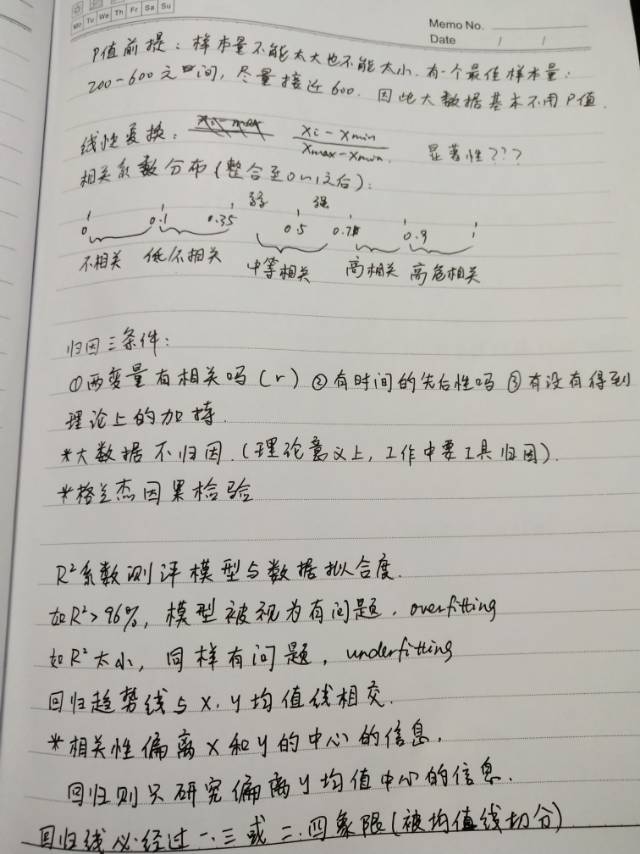 Memo No.
Mo Tu We Th Fr Sa Su
Date / /
P值前提：样本量不能太大也不能太小.有一个最佳样本量：
200-600之间，尽量接近600. 因此大数据基本不用P值.
线性变换： Xi-Xmin / Xmax-Xmin. 显著性???
相关系数分布(整合至0~1之后)：
弱 强
0 0.1 0.35 0.5 0.78 0.9 1
不相关 低/不相关 中等相关 高相关 高危相关
归因三条件：
①两变量有相关吗(r) ②有时间的先后性吗 ③有没有得到
理论上的加持.
*大数据不归因.(理论意义上,工作中要工具归因).
*格兰杰因果检验
R²系数测评模型与数据拟合度.
如R²>96%, 模型被视为有问题. overfitting
如R²太小, 同样有问题, underfitting
回归趋势线与x.y均值线相交.
*相关性偏离x和y的中心的信息.
回归则只研究偏离y均值中心的信息.
回归线必经过一.三或二.四象限(被均值线切分)